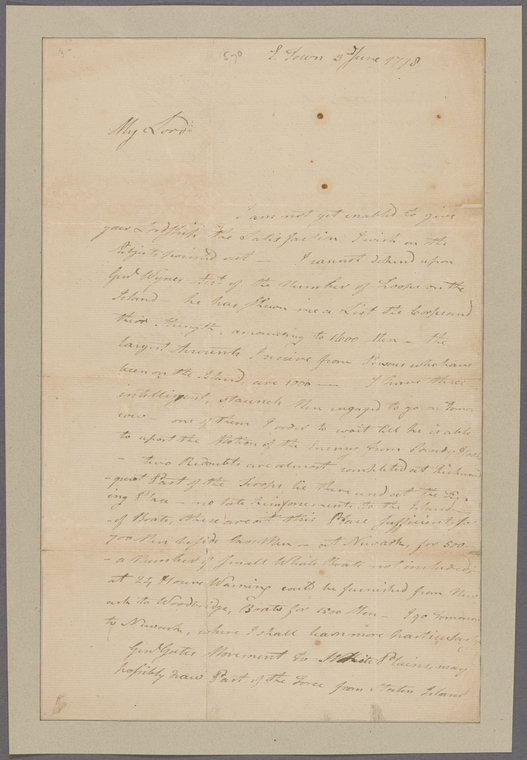 E. Town 3d June 1778
My Lord
I am not yet enabled to give
your Lordship the Satisfaction I wish on the
Subjects pointed out — I cannot depend upon
Genl Wynds Acct of the Number of Troops on the
Island — he has shewn me a List the Corps and
their Strength, amounting to 1600 Men — the
largest Accounts I receive from Persons who have
been on the Island are 1000 — I have three
intelligent, staunch Men engaged to go on Tomor
row — one of them I order to wait till he is able
to report the Motion of the Enemy from
— two Redoubts are almost compleated at Richmond
— great Part of the Troops lie there and at the
ing Place — no late Reinforcements to the Island
— of Boats, there are at this Place, sufficient for
700 Men besides — at Newark, for 500
— a Number of small Whale Boats not included.
at 24 Hours Warning could be furnished from New
ark to Woodbridge, Boats for 1500 Men — I go Tomorrow
to Newark, where I shall learn more particularly
Genl Gates Movement to White Plains, may
possibly draw Part of the Force from Staten Island